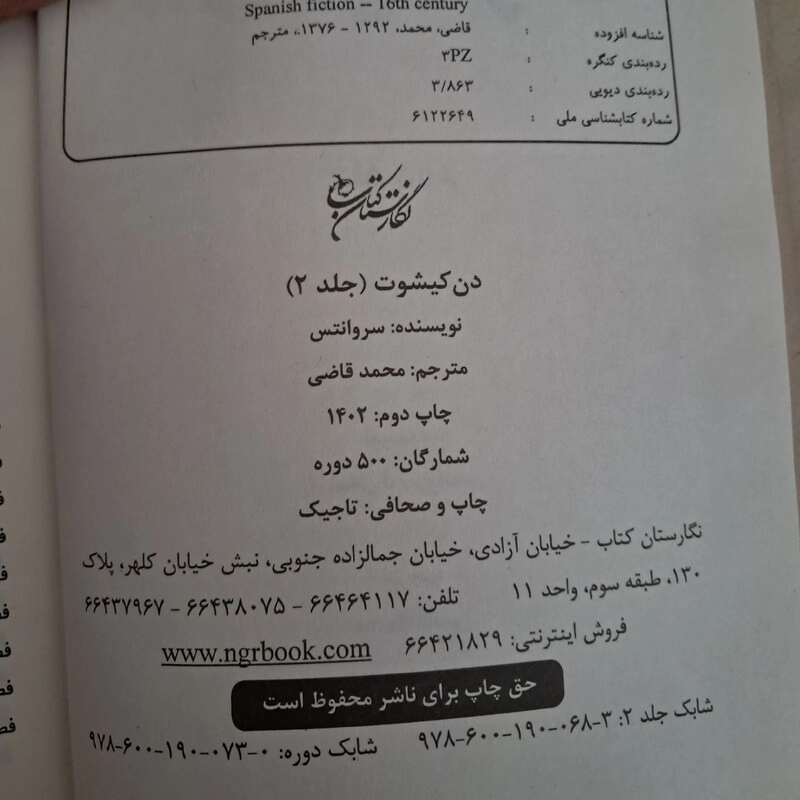 Spanish fiction -- 16th century
شناسه افزوده : قاضی، محمد، ۱۲۹۲ - ۱۳۷۶.، مترجم
رده‌بندی کنگره : ۳PZ
رده‌بندی دیویی : ۳/۸۶۳
شماره کتابشناسی ملی : ۶۱۲۲۶۴۹
نگارستان کتاب
دن کیشوت (جلد ۲)
نویسنده: سروانتس
مترجم: محمد قاضی
چاپ دوم: ۱۴۰۲
شمارگان: ۵۰۰ دوره
چاپ و صحافی: تاجیک
نگارستان کتاب - خیابان آزادی، خیابان جمالزاده جنوبی، نبش خیابان کلهر، پلاک
۱۳۰، طبقه سوم، واحد ۱۱ تلفن: ۶۶۴۶۴۱۱۷ - ۶۶۴۳۸۰۷۵ - ۶۶۴۳۷۹۶۷
فروش اینترنتی: ۶۶۴۲۱۸۲۹ www.ngrbook.com
حق چاپ برای ناشر محفوظ است
شابک جلد ۲: ۳-۰۶۸-۱۹۰-۶۰۰-۹۷۸ شابک دوره: ۰-۰۷۳-۱۹۰-۶۰۰-۹۷۸